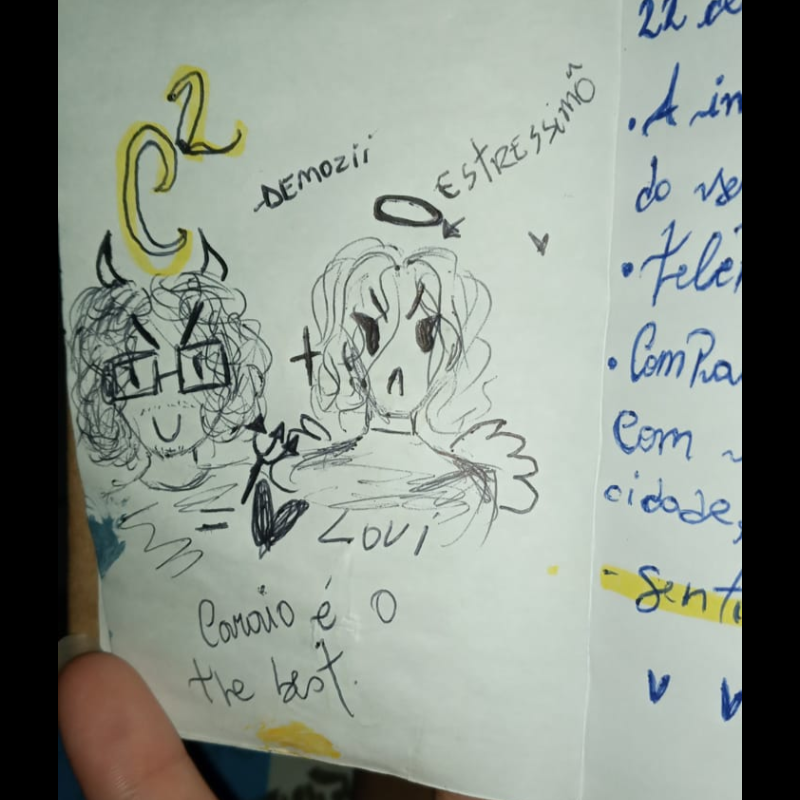 C²
DEMOZii
ESTRESSIMÔ
+
= LOVi
Caraio é o
the best.
22 de
• A in
do
• Telé
• Compra
Com
cidade,
- Senti